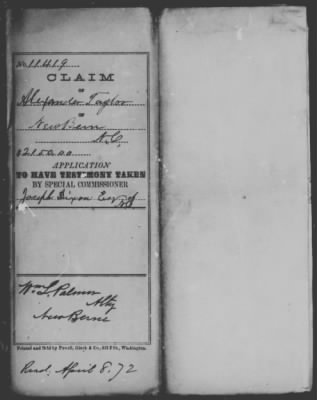 No. 11.419
CLAIM
OF
Alexander Taylor
OF
New Bern
N.C.
$2150.00
APPLICATION
TO HAVE TESTIMONY TAKEN
BY SPECIAL COMMISSIONER
Joseph Dixon Esq of
Wm L. Palmer
Atty
New Berne
Printed and Sold by Powell, Ginck & Co., 513 F St., Washington.
Recd. April 8. 72